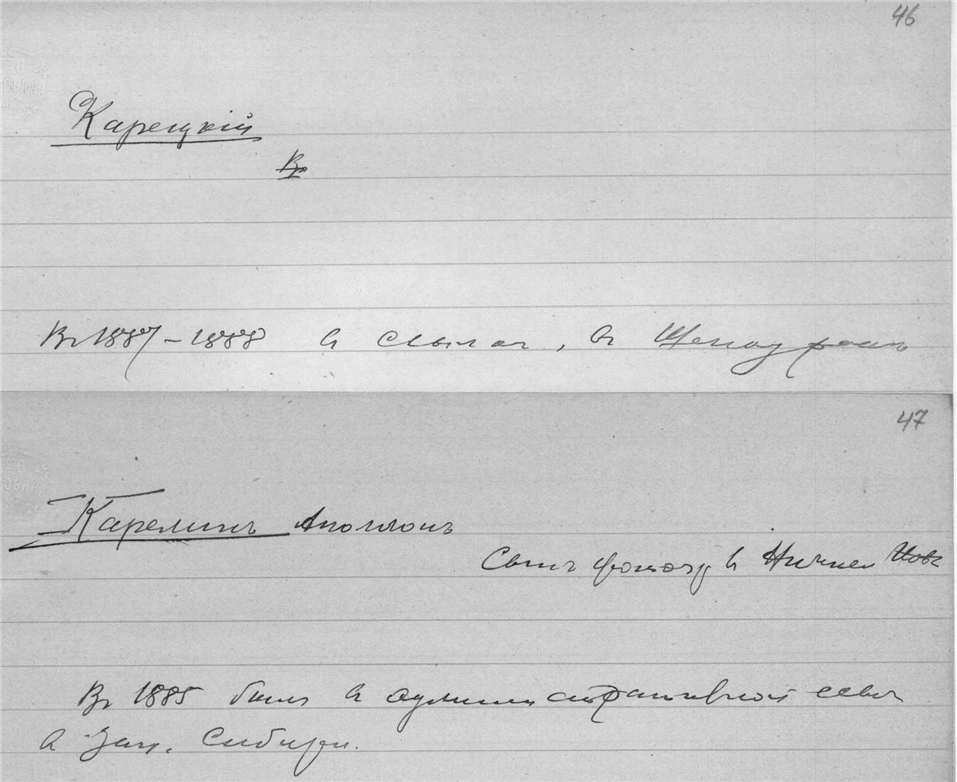 46
Карецкій
Въ
Въ 1887–1888 въ ссылкѣ, въ
47
Карелинъ Аполлонъ
Сынъ фотогр въ Нижнем Новг
Въ 1885 былъ въ административной ссылкѣ
въ Зап. Сибири.